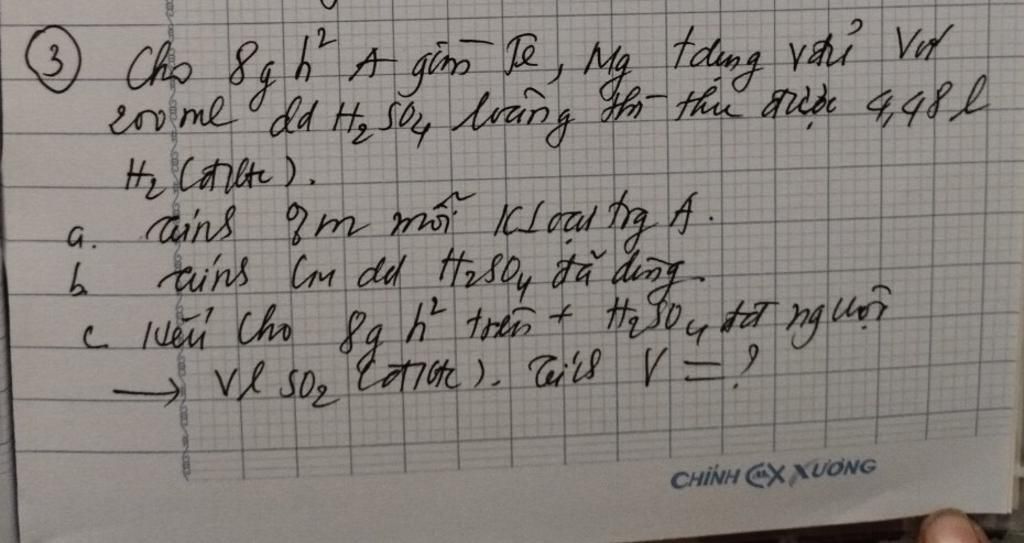 ③ Cho 8g h² A gồm Fe, Mg tdụng vđủ với
200 ml dd H₂SO₄ loãng thì thu được 4,48 l
H₂ (đktc).
a. Tính %m mỗi Kloại trg A.
b Tính CM dd H₂SO₄ đã dùng.
c Nếu cho 8g h² trên + H₂SO₄ đ nguội
→ Vl SO₂ (đktc). Tính V = ?
CHÍNH XƯƠNG